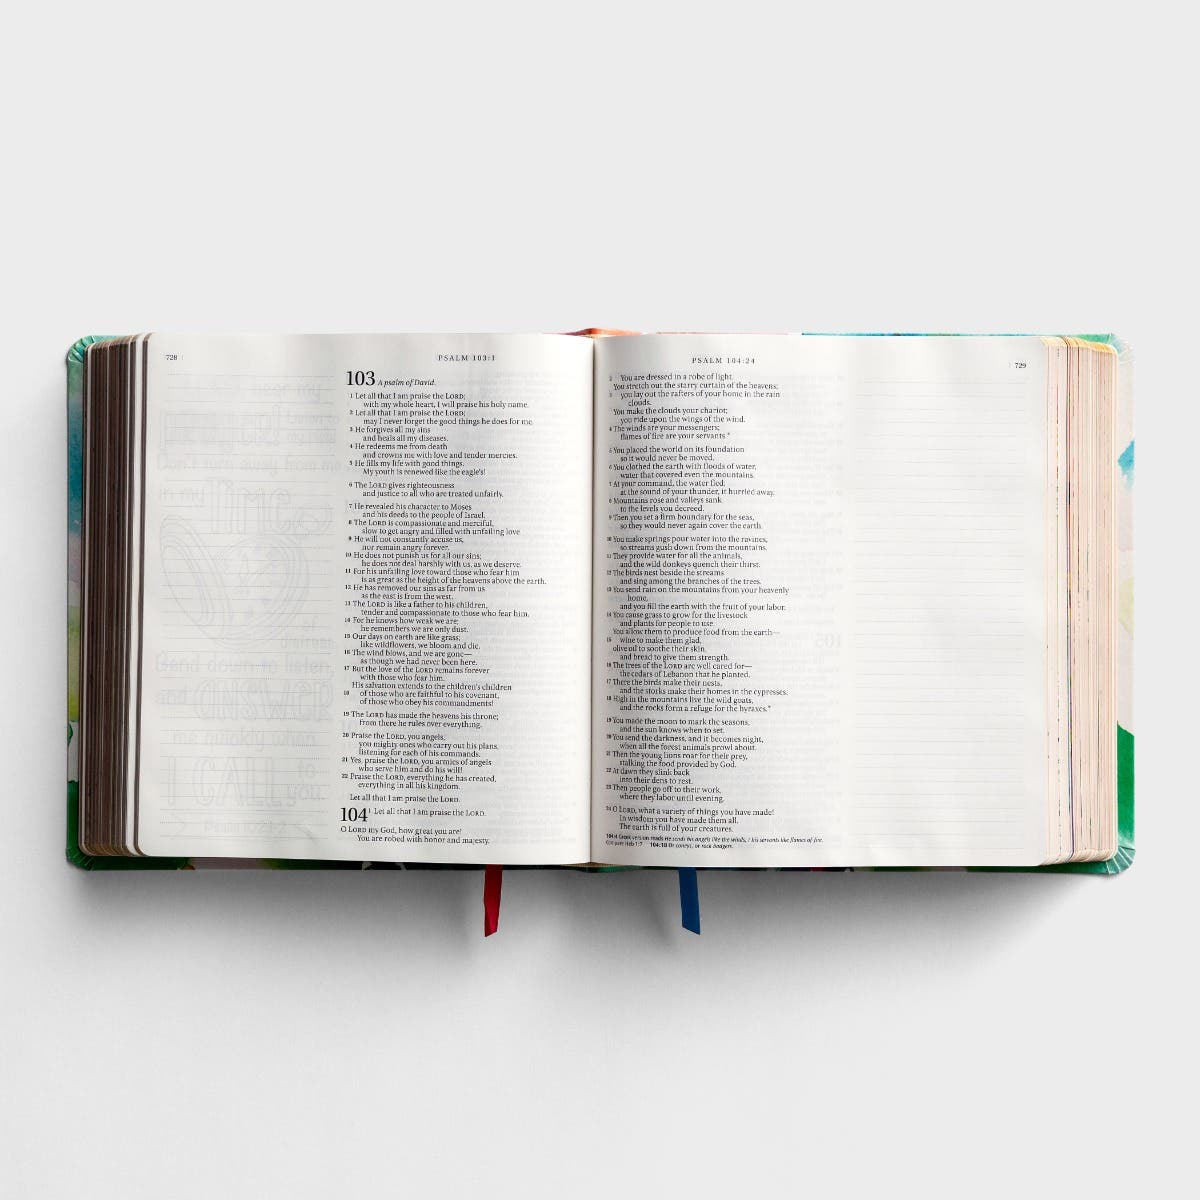 728
PSALM 103:1
103 A psalm of David.
1 Let all that I am praise the LORD;
with my whole heart, I will praise his holy name.
2 Let all that I am praise the LORD;
may I never forget the good things he does for me.
3 He forgives all my sins
and heals all my diseases.
4 He redeems me from death
and crowns me with love and tender mercies.
5 He fills my life with good things.
My youth is renewed like the eagle's!
6 The LORD gives righteousness
and justice to all who are treated unfairly.
7 He revealed his character to Moses
and his deeds to the people of Israel.
8 The LORD is compassionate and merciful,
slow to get angry and filled with unfailing love.
9 He will not constantly accuse us,
nor remain angry forever.
10 He does not punish us for all our sins;
he does not deal harshly with us, as we deserve.
11 For his unfailing love toward those who fear him
is as great as the height of the heavens above the earth.
12 He has removed our sins as far from us
as the east is from the west.
13 The LORD is like a father to his children,
tender and compassionate to those who fear him.
14 For he knows how weak we are;
he remembers we are only dust.
15 Our days on earth are like grass;
like wildflowers, we bloom and die.
16 The wind blows, and we are gone—
as though we had never been here.
17 But the love of the LORD remains forever
with those who fear him.
His salvation extends to the children's children
18 of those who are faithful to his covenant,
of those who obey his commandments!
19 The LORD has made the heavens his throne;
from there he rules over everything.
20 Praise the LORD, you angels,
you mighty ones who carry out his plans,
listening for each of his commands.
21 Yes, praise the LORD, you armies of angels
who serve him and do his will!
22 Praise the LORD, everything he has created,
everything in all his kingdom.
Let all that I am praise the LORD.
104 1 Let all that I am praise the LORD.
O LORD my God, how great you are!
You are robed with honor and majesty.
PSALM 104:24
729
2 You are dressed in a robe of light.
You stretch out the starry curtain of the heavens;
3 you lay out the rafters of your home in the rain
clouds.
You make the clouds your chariot;
you ride upon the wings of the wind.
4 The winds are your messengers;
flames of fire are your servants.*
5 You placed the world on its foundation
so it would never be moved.
6 You clothed the earth with floods of water,
water that covered even the mountains.
7 At your command, the water fled;
at the sound of your thunder, it hurried away.
8 Mountains rose and valleys sank
to the levels you decreed.
9 Then you set a firm boundary for the seas,
so they would never again cover the earth.
10 You make springs pour water into the ravines,
so streams gush down from the mountains.
11 They provide water for all the animals,
and the wild donkeys quench their thirst.
12 The birds nest beside the streams
and sing among the branches of the trees.
13 You send rain on the mountains from your heavenly
home,
and you fill the earth with the fruit of your labor.
14 You cause grass to grow for the livestock
and plants for people to use.
You allow them to produce food from the earth—
15 wine to make them glad,
olive oil to soothe their skin,
and bread to give them strength.
16 The trees of the LORD are well cared for—
the cedars of Lebanon that he planted.
17 There the birds make their nests,
and the storks make their homes in the cypresses.
18 High in the mountains live the wild goats,
and the rocks form a refuge for the hyraxes.*
19 You made the moon to mark the seasons,
and the sun knows when to set.
20 You send the darkness, and it becomes night,
when all the forest animals prowl about.
21 Then the young lions roar for their prey,
stalking the food provided by God.
22 At dawn they slink back
into their dens to rest.
23 Then people go off to their work,
where they labor until evening.
24 O LORD, what a variety of things you have made!
In wisdom you have made them all.
The earth is full of your creatures.
104:4 Greek version reads He sends his angels like the winds, / his servants like flames of fire.
Compare Heb 1:7. 104:18 Or coneys, or rock badgers.